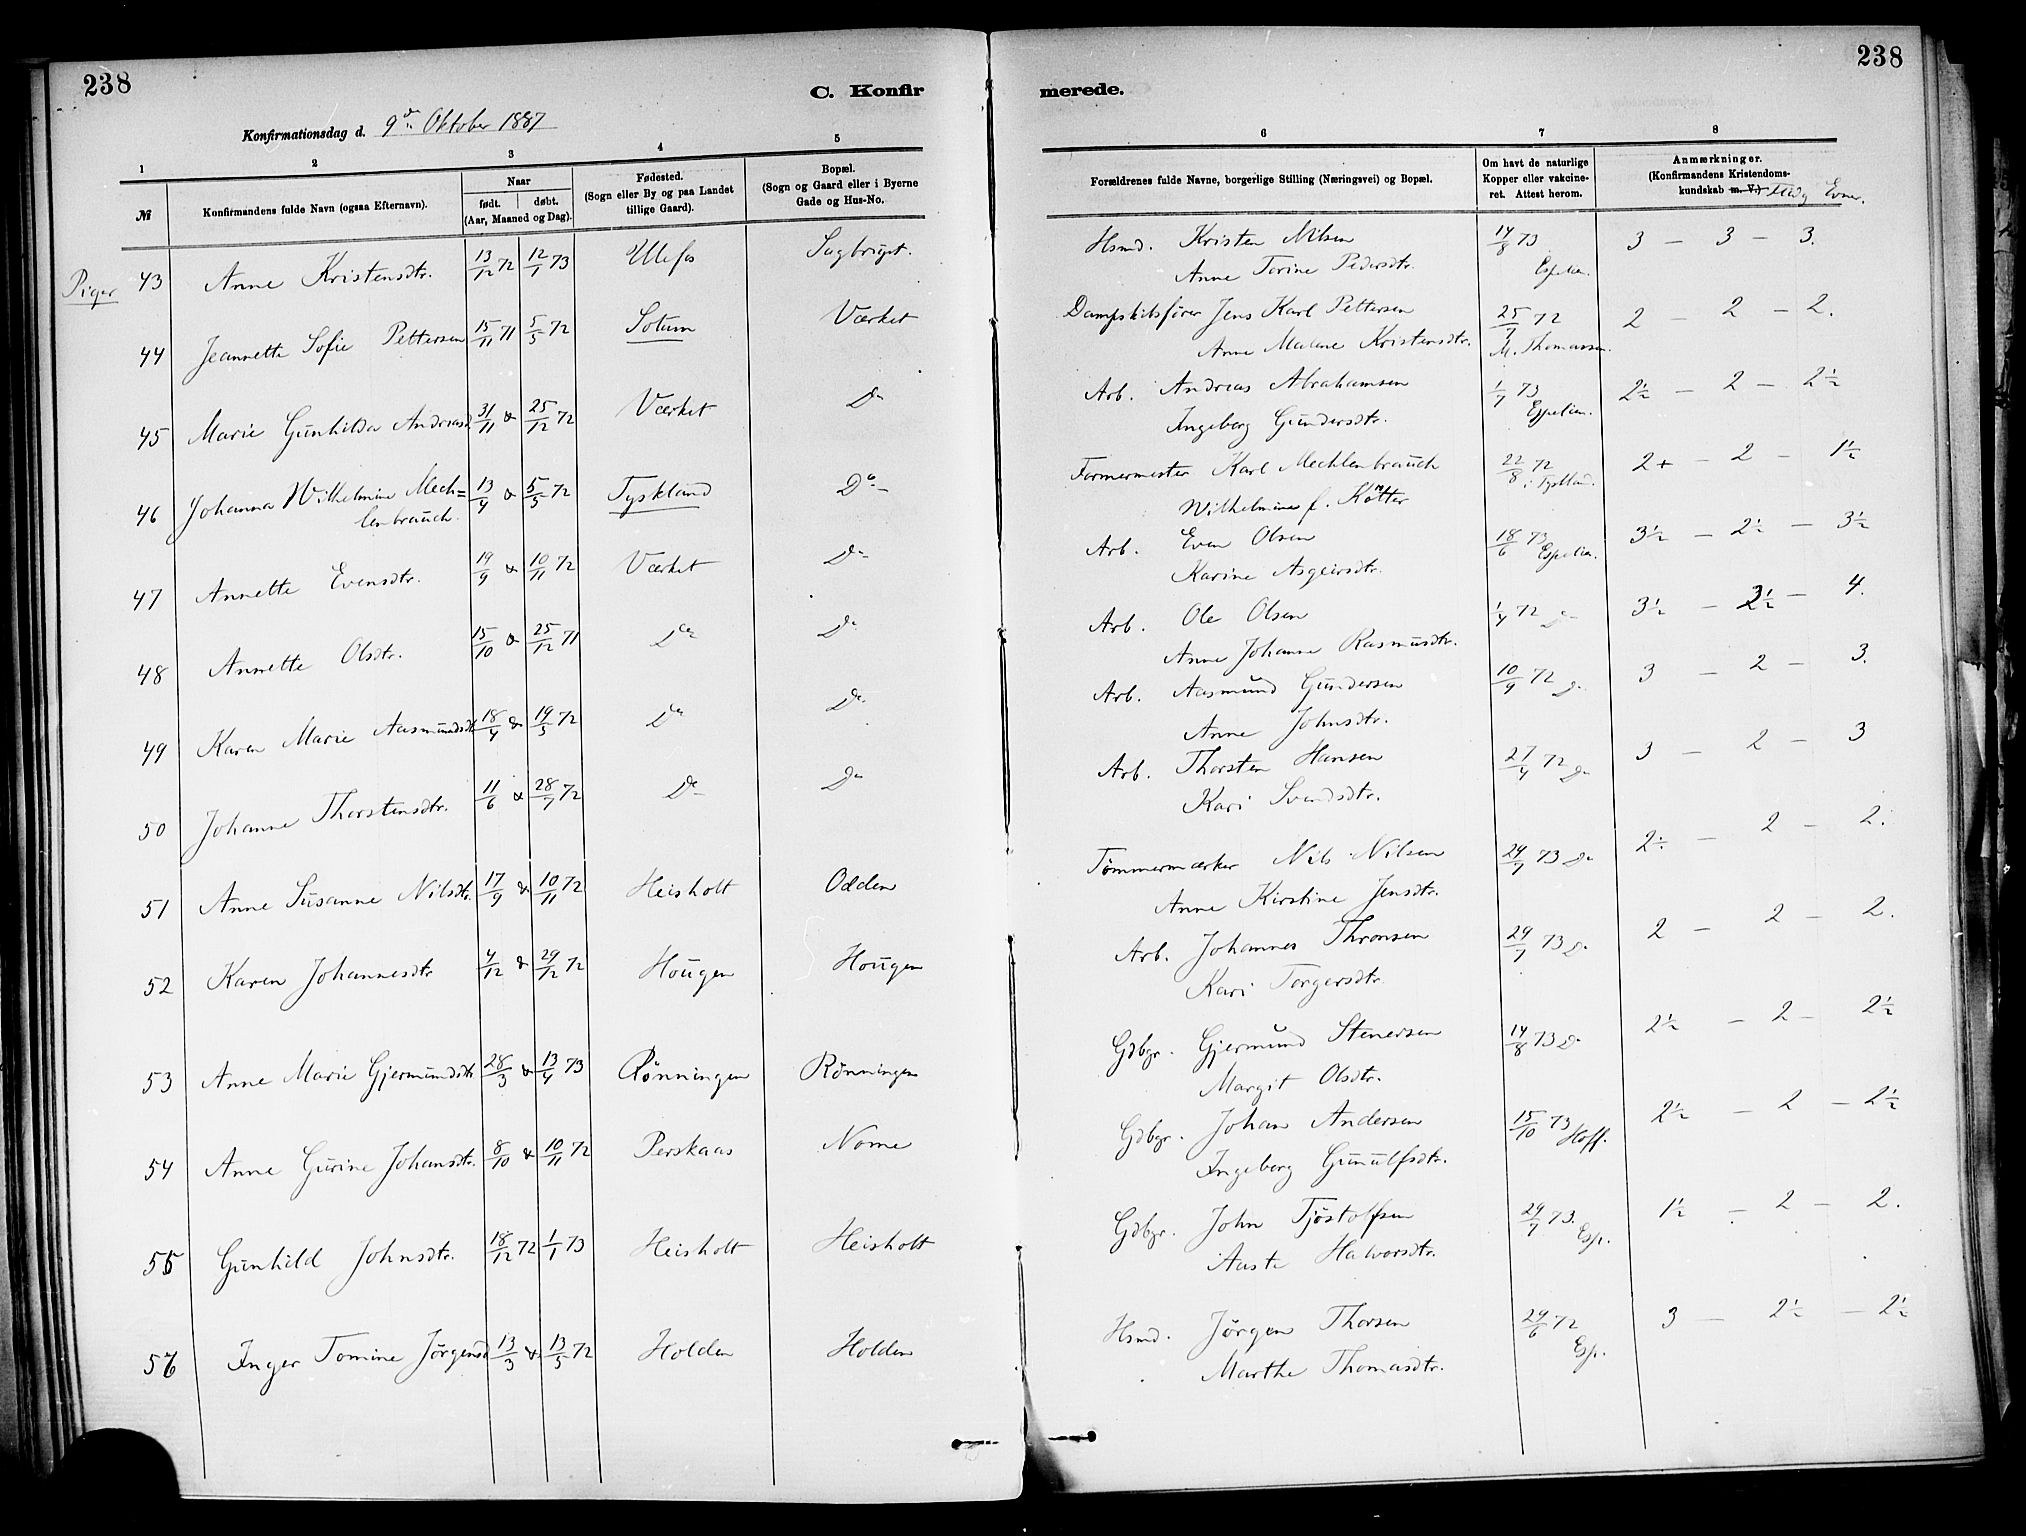 238
238
C. Konfirmerede.
Konfirmationsdag d. 9de Oktober 1887
1 2 3 4 5 6 7 8
№ Konfirmandens fulde Navn (ogsaa Efternavn). Naar født. døbt. (Aar, Maaned og Dag). Fødested. (Sogn eller By og paa Landet tillige Gaard). Bopæl. (Sogn og Gaard eller i Byerne Gade og Hus-No. Forældrenes fulde Navne, borgerlige Stilling (Næringsvei) og Bopæl. Om havt de naturlige Kopper eller vakcineret. Attest herom. Anmærkninger. (Konfirmandens Kristendomskundskab m. V.) Evner.
Piger 43 Anne Kristensdtr. 13/12 72 12/1 73 Ulefos Sagbruget. Hsmd. Kristen Nilsen 14/8 73 3 — 3 — 3.
Anne Torine Pedersdtr. Espelien.
44 Jeannette Sofie Pettersen 15/11 71 5/5 72 Solum Værket Dampskibsfører Jens Karl Pettersen 25/7 72 2 — 2 — 2.
Anne Malene Kristensdtr. M. Thomassen.
45 Marie Gunhilda Andreasd. 31/11 & 25/12 72 Værket Do Arb. Andreas Abrahamsen 1/7 73 2½ — 2 — 2½
Ingeborg Gundersdtr. Espelien.
46 Johanna Wilhelmine Mech= 13/4 & 5/5 72 Tyskland Do Formermester Karl Mechlenbrauch 22/8 72 2+ — 2 — 1½
lenbrauch. Wilhelmine f. Kötter i Tyskland.
47 Annette Evensdtr. 19/9 & 10/11 72 Værket Do Arb. Even Olsen 18/6 73 3½ — 2½ — 3½
Karine Asgeirsdtr. Espelien.
48 Annette Olsdtr. 15/10 & 25/12 71 Do Do Arb. Ole Olsen 1/4 72 Do 3½ — 3½ — 4.
Anne Johanne Rasmusdtr.
49 Karen Marie Aasmundsdtr 18/4 & 19/5 72 Do Do Arb. Aasmund Gundersen 10/9 72 Do 3 — 2 — 3.
Anne Johnsdtr.
50 Johanne Thorstensdtr. 11/6 & 28/7 72 Do Do Arb. Thorsten Hansen 27/4 72 Do 3 — 2 — 3
Kari Svendsdtr.
51 Anne Susanne Nilsdtr. 17/9 & 10/11 72 Heisholt Odden Tømmermærker Nils Nilsen 29/7 73 Do 2÷ — 2 — 2.
Anne Kirstine Jensdtr.
52 Karen Johannesdtr 4/12 & 29/12 72 Hougen Hougen Arb. Johannes Thronsen 29/7 73 Do 2 — 2 — 2.
Kari Torgersdtr
53 Anne Marie Gjermundsdtr 28/3 & 13/4 73 Rønningen Rønningen Gdbgr. Gjermund Stenersen 14/8 73 Do 2½ — 2 — 2½
Margit Olsdtr.
54 Anne Gurine Johansdtr. 8/10 & 10/11 72 Perskaas Nome Gdbgr. Johan Andersen 15/10 73 Hoff. 2½ — 2 — 2½
Ingeborg Gunulfsdtr.
55 Gunhild Johnsdtr. 18/12 72 1/1 73 Heisholt Heisholt Gdbgr. John Tjøstolfsen 29/7 73. Esp. 1½ — 2 — 2.
Aaste Halvorsdtr.
56 Inger Tomine Jørgensd 13/3 & 13/5 72 Holden Holden Hsmd. Jørgen Thorsen 29/6 72 Esp. 3 — 2½ — 2½
Marthe Thomasdtr.